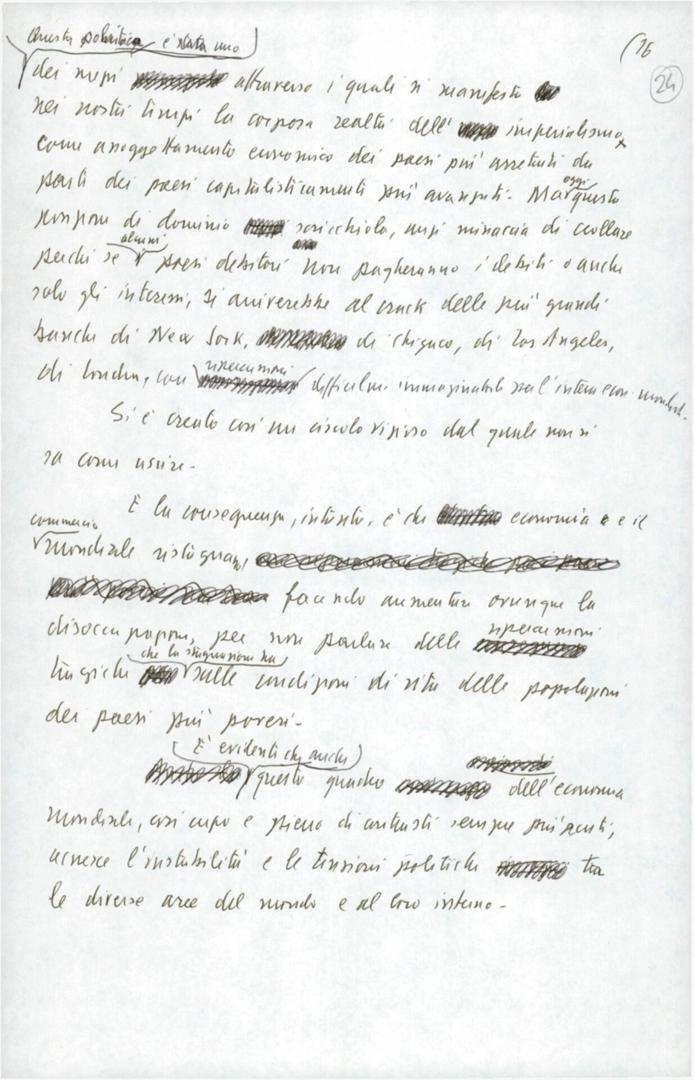 Questa politica è stata uno
(16
24
dei modi attraverso i quali si manifesta
nei nostri tempi la corposa realtà dell'imperialismo,
come assoggettamento economico dei paesi più arretrati da
parte dei paesi capitalisticamente più avanzati. Ma oggi questa
di dominio scricchiola, anzi minaccia di crollare
perché se alcuni paesi debitori non pagheranno i debiti o anche
solo gli interessi, si arriverebbe al crack delle più grandi
banche di New York, di Chigaco, di Los Angeles,
di Londra, con ripercussioni difficilm. immaginabili per l'intera econ. mondiale.
Si è creato così un circolo vizioso dal quale non si
sa come uscire.
E la conseguenza, intanto, è che economia e il
commercio
mondiale ristagnano, facendo aumentare ovunque la
disoccupazione, per non parlare delle ripercussioni
tragiche che la stagnazione ha sulle condizioni di vita delle popolazioni
dei paesi più poveri.
È evidente che anche
questo quadro dell'economia
mondiale, così cupo e pieno di contrasti sempre più acuti,
accresce l'instabilità e le tensioni politiche tra
le diverse aree del mondo e al loro interno.